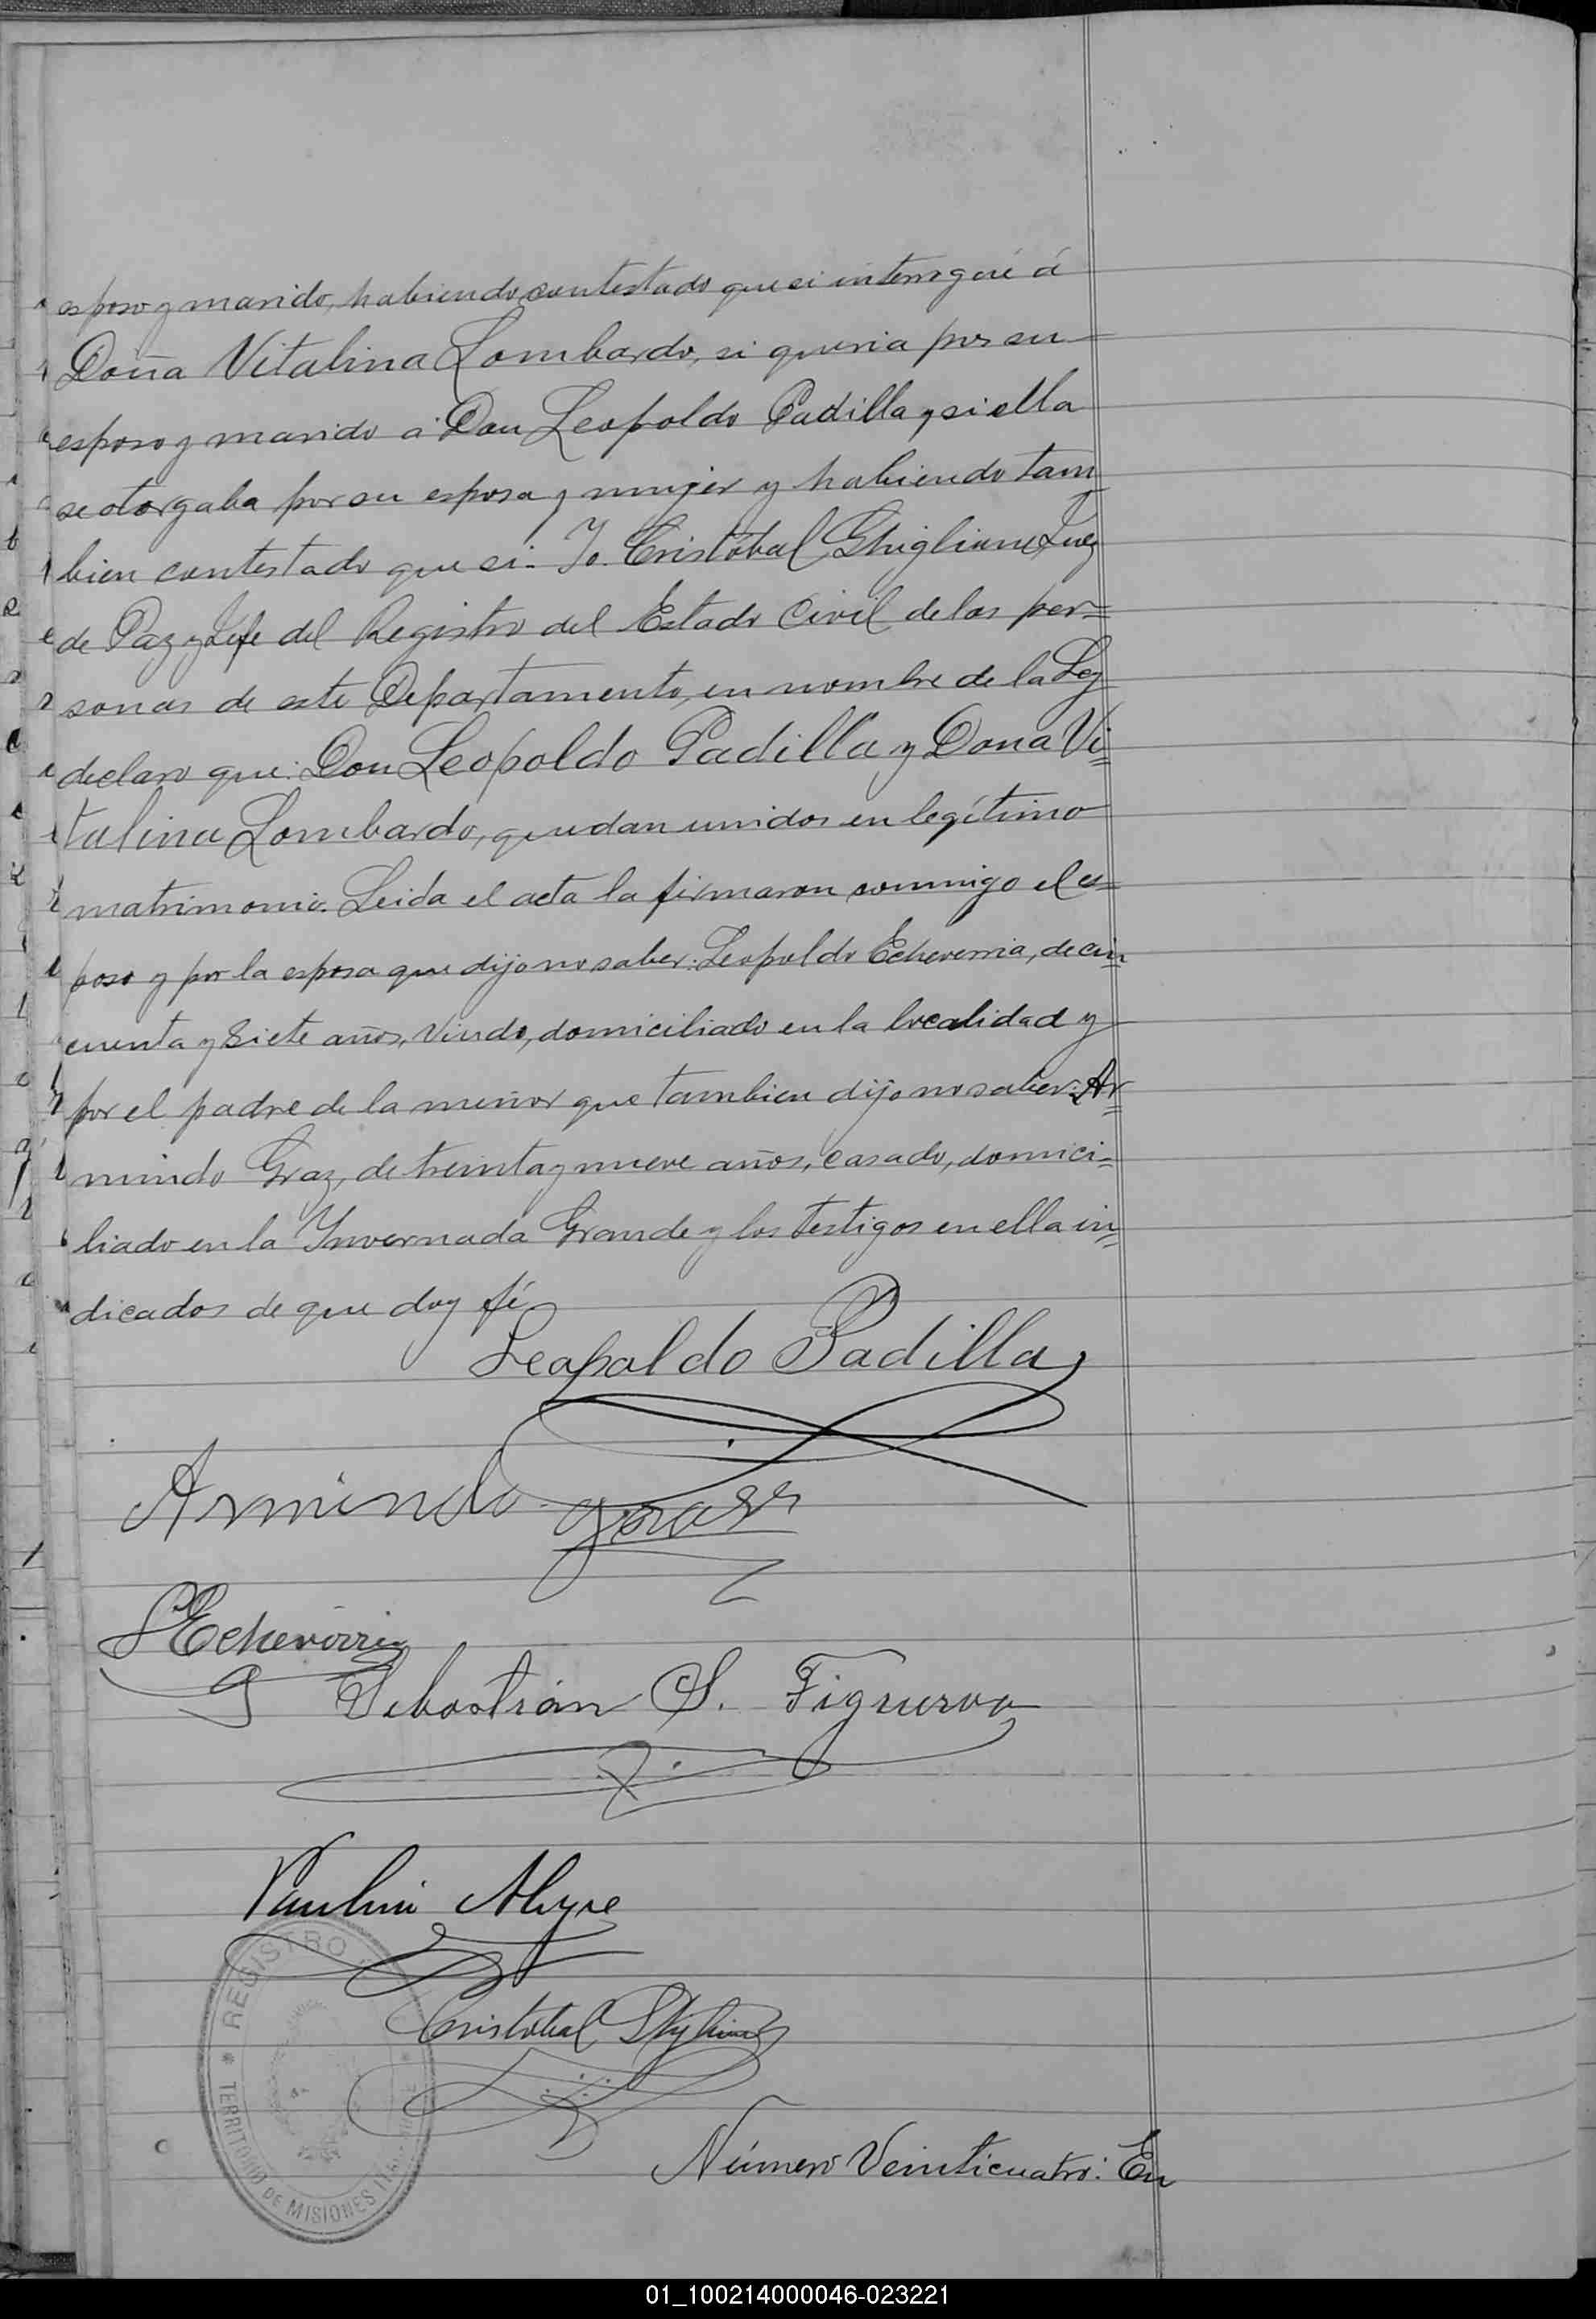 esposo y marido, habiendo contestado que si interrogué á
Doña Vitalina Lombardo, si queria por su
esposo y marido a Don Leopoldo Padilla y si ella
se otorgaba por su esposa y mujer y habiendo tam
bien contestado que si. Yo. Cristóbal Ghigliane Juez
de Paz y Jefe del Registro del Estado Civil de las per=
sonas de este Departamento, en nombre de la Ley
declaro que: Don Leopoldo Padilla y Dona Vi=
talina Lombardo, quedan unidos en legítimo
matrimonio. Leida el acta la firmaron conmigo el es=
poso y por la esposa que dijo no saber: Leopoldo Echeverria, de cin=
cuenta y siete años, viudo, domiciliado en la localidad y
por el padre de la menor que tambien dijo no saber: Ar=
mindo Graz, de treinta y nueve años, casado, domici=
liado en la Invernada Grande y los testigos en ella in=
dicados de que doy fé
Leopoldo Padilla
Armindo
L Echeverria
Sebastián S. Figueroa
Cristobal
REGISTRO
TERRITORIO DE MISIONES
Número Veinticuatro: En
01_100214000046-023221